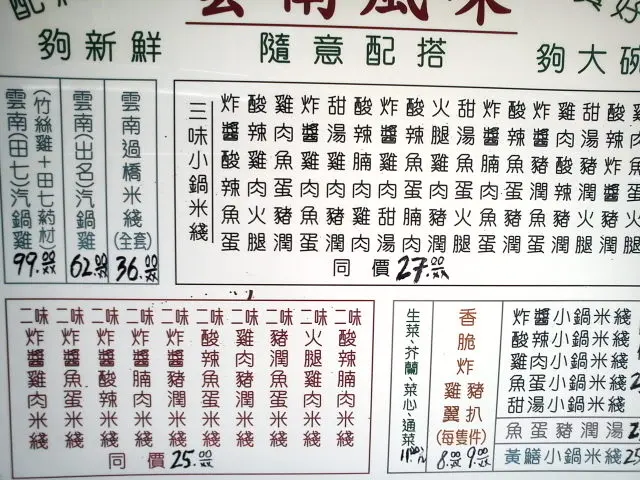 雲南風味
夠新鮮
隨意配搭
夠大碗
雲南(田七)汽鍋雞
(竹絲雞+田七葯材)
99.00
雲南(出名)汽鍋雞
62.00
雲南過橋米綫(全套)
36.00
三味小鍋米綫
炸醬酸辣魚蛋
酸辣雞肉火腿
雞肉魚蛋豬潤
炸醬雞肉魚蛋
甜湯雞肉豬潤
酸辣腩肉雞肉
炸醬雞肉甜湯
酸辣雞肉腩肉
火腿雞肉魚蛋
甜湯腩肉火腿
炸醬腩肉魚蛋
酸辣魚蛋豬潤
炸醬豬潤火腿
雞肉酸辣魚蛋
甜湯豬潤火腿
酸辣炸醬魚蛋
同價27.00
二味炸醬雞肉米綫
二味炸醬魚蛋米綫
二味炸醬酸辣米綫
二味炸醬腩肉米綫
二味炸醬豬潤米綫
二味酸辣魚蛋米綫
二味雞肉魚蛋米綫
二味豬潤魚蛋米綫
二味火腿雞肉米綫
二味酸辣腩肉米綫
同價25.00
生菜、芥蘭、菜心、通菜
11.00
香脆炸
雞翼
豬扒
(每隻件)
8.00
9.00
炸醬小鍋米綫
酸辣小鍋米綫
雞肉小鍋米綫
魚蛋小鍋米綫
甜湯小鍋米綫
魚蛋豬潤湯
黃鱔小鍋米綫25